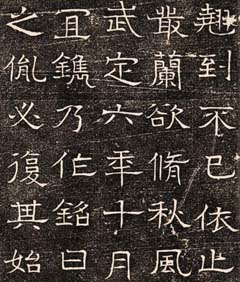 翹到不已依止
叢蘭欲脩秋風
武定六年十月
冝鐫乃作銘曰
之胤必復其始